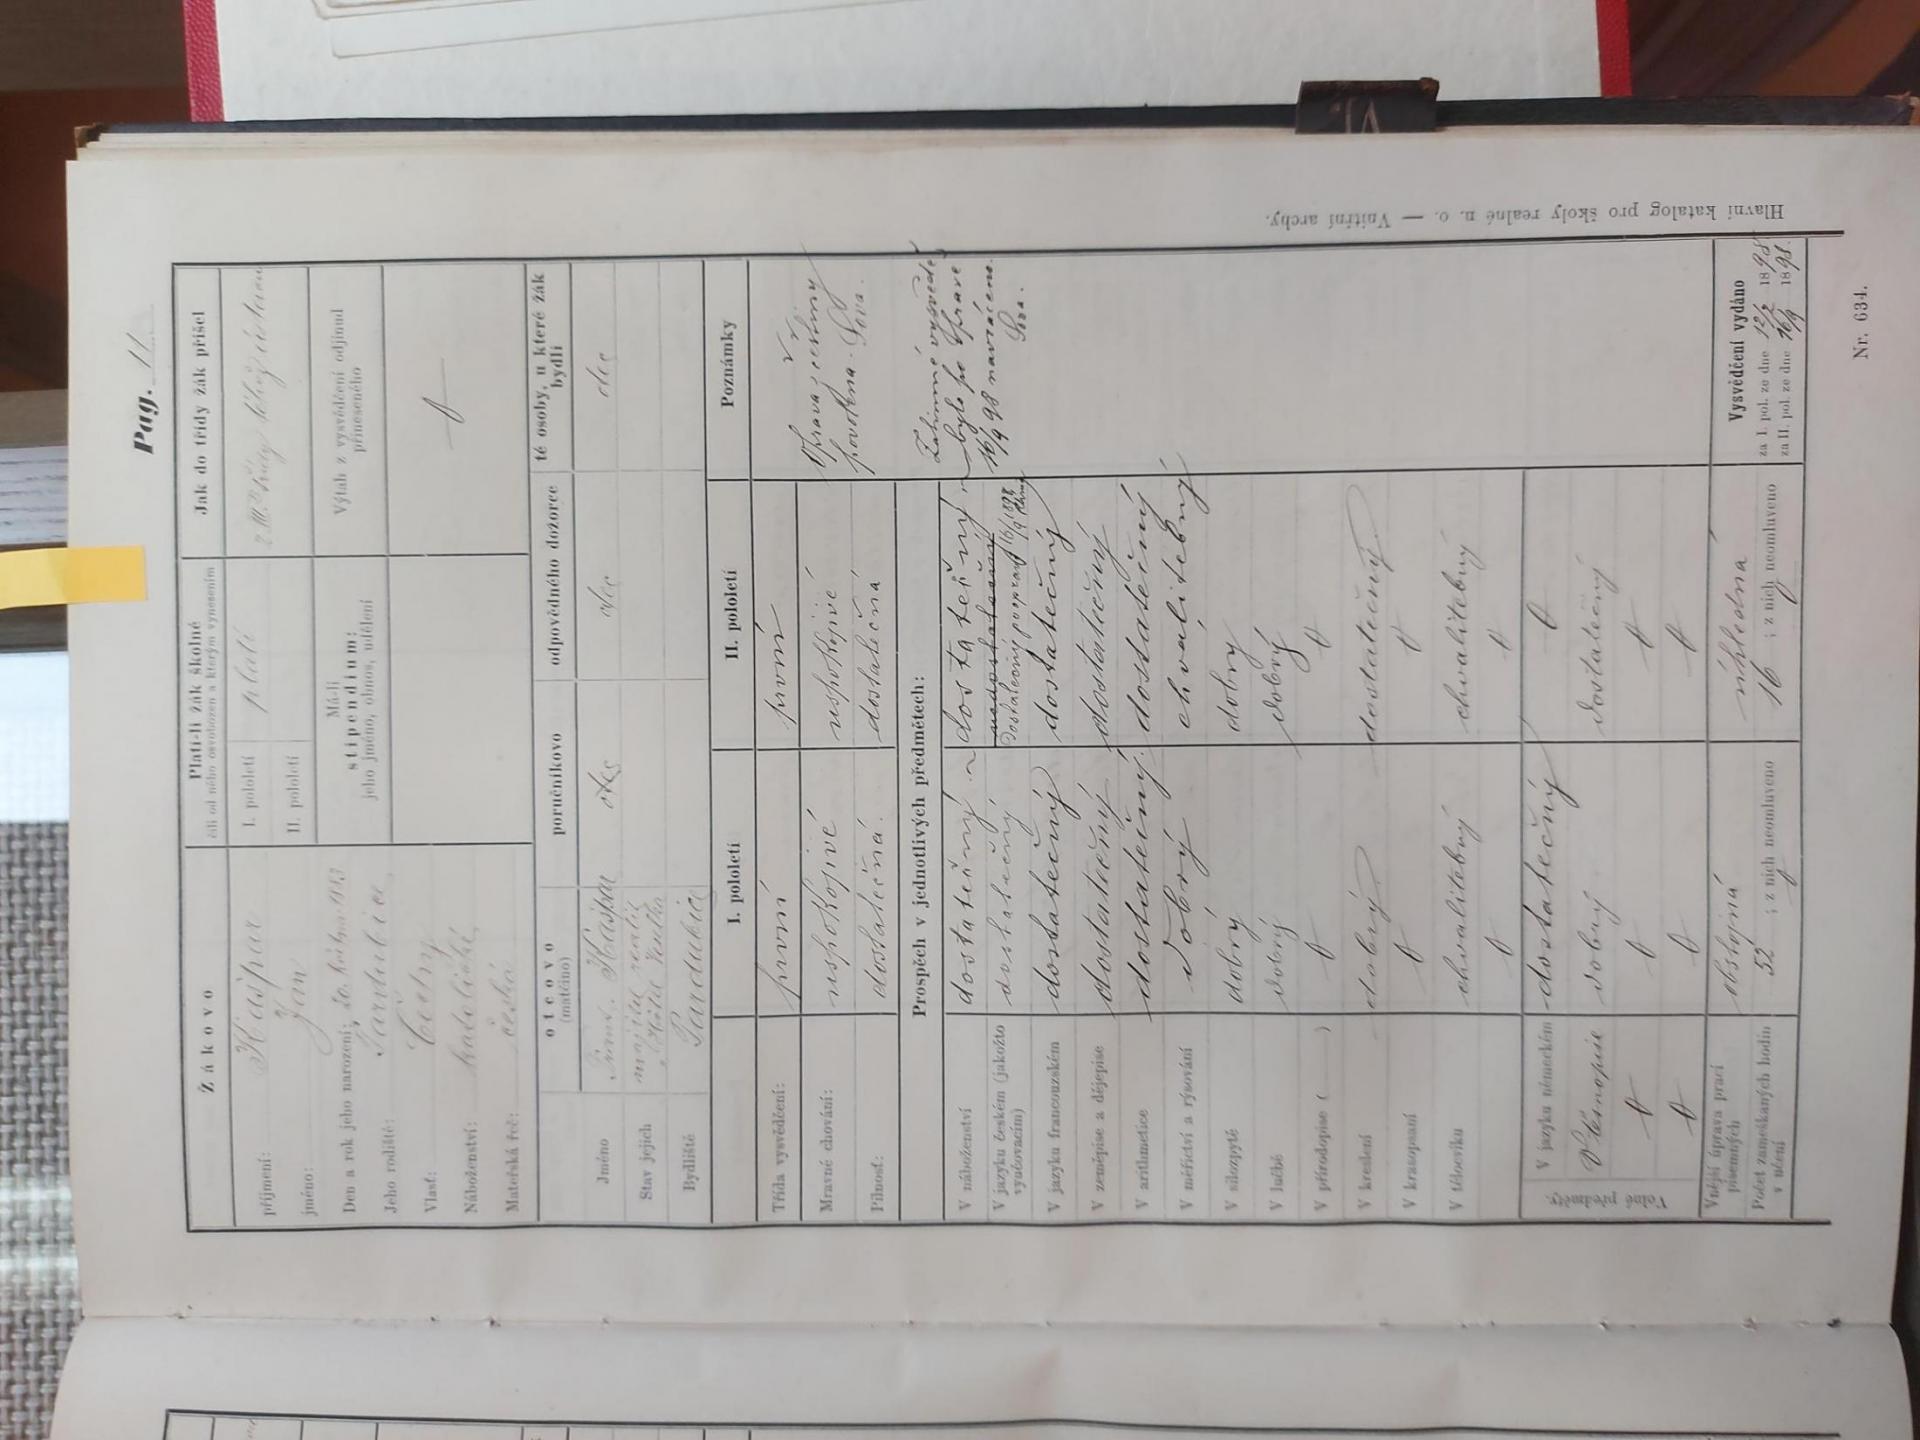 Pag. 11
Žákovo
Platí-li žák školné
čili od něho osvobozen a kterým vynesením
Jak do třídy žák přišel
příjmení: Kašpar
I. pololetí platí
jméno: Jan
II. pololetí
Den a rok jeho narození: 20. května 1883
Má-li
stipendium:
jeho jméno, obnos, udělení
Výtah z vysvědčení odjinud
přineseného
Jeho rodiště: Pardubice
Vlast: Čechy
Náboženství: katolické
Mateřská řeč: česká
otcovo
(matčino)
poručníkovo
odpovědného dozorce
té osoby, u které žák
bydlí
Jméno Frant. Kašpar otec otec otec
Stav jejich majitel realit
Hôtel Veselka
Bydliště Pardubice
I. pololetí II. pololetí Poznámky
Třída vysvědčení: první první
Mravné chování: uspokojivé uspokojivé
Pilnost: dostatečná. dostatečná
Oprava z češtiny
povolena. Sova.
Prospěch v jednotlivých předmětech:
V náboženství dostatečný dostatečný
V jazyku českém (jakožto
vyučovacím) dostatečný nedostatečný
dostatečný po opravě 16/9 1898
V jazyku francouzském dostatečný dostatečný
V zeměpise a dějepise dostatečný dostatečný
V arithmetice dostatečný dostatečný
V měřictví a rýsování dobrý chvalitebný
V silozpytě dobrý dobrý
V lučbě dobrý dobrý
V přírodopise ( )
V kreslení dobrý dostatečný
V krasopsaní
V tělocviku chvalitebný chvalitebný
bylo po opravě
16/9 98 navráceno.
Sova.
Volné předměty.
V jazyku německém dostatečný
Těsnopise dobrý dostatečný
Vnější úprava prací
písemných obstojná úhledná
Počet zameškaných hodin
v učení 52 ; z nich neomluveno 16 ; z nich neomluveno
Vysvědčení vydáno
za I. pol. ze dne 12/2 1898
za II. pol. ze dne 16/9 1898.
Hlavní katalog pro školy realné n. o. — Vnitřní archy.
Nr. 634.